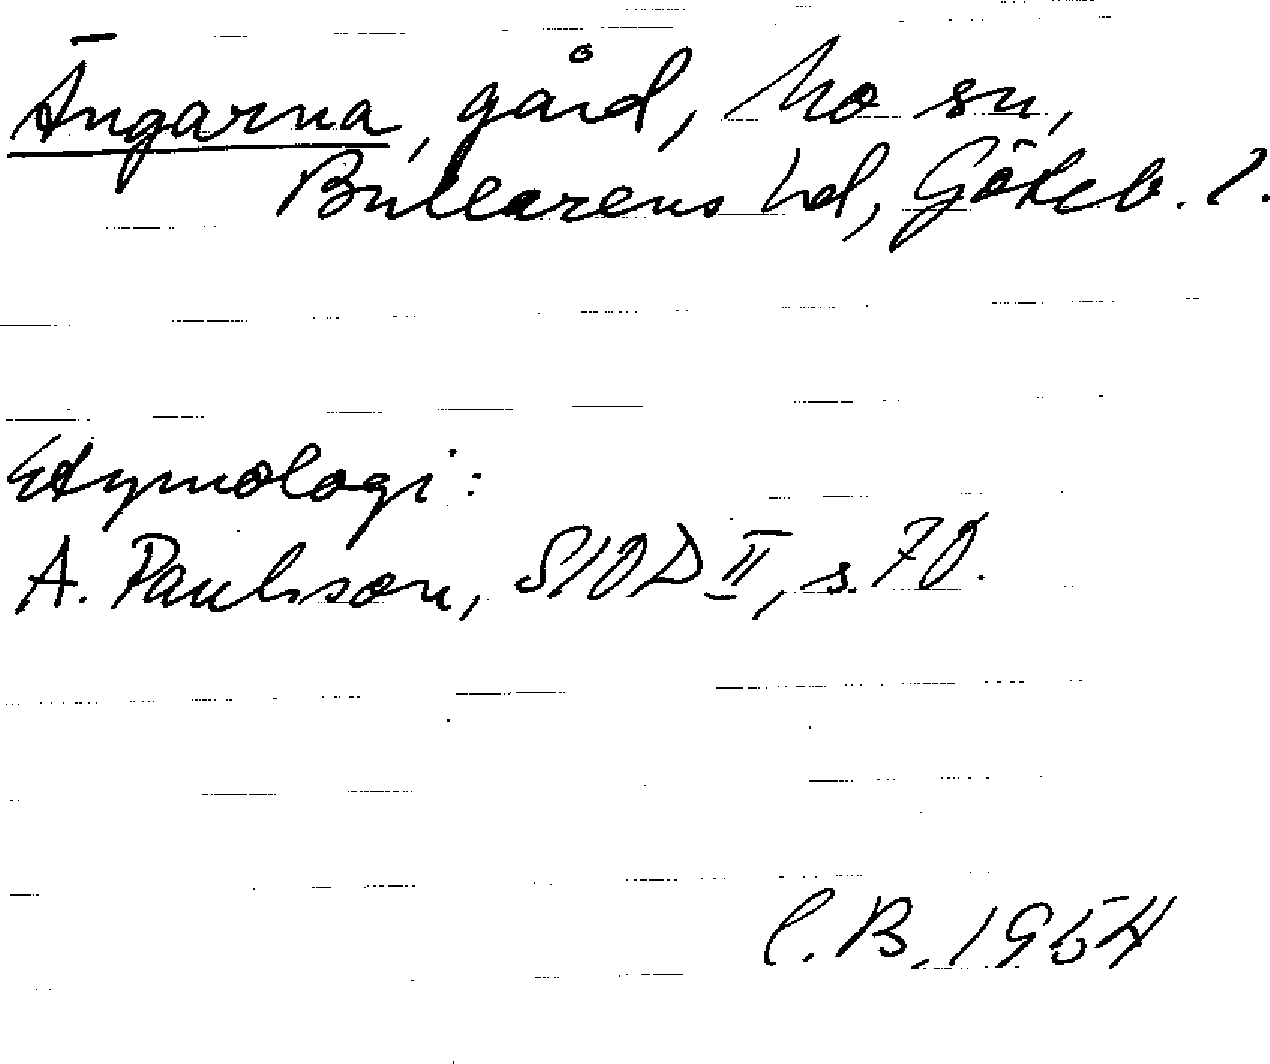 Ängarna, gård, Mo sn,
Bullarens hd, Göteb. l.
Etymologi:
A. Paulsson, SIOD II, s. 70.
C. B. 1954